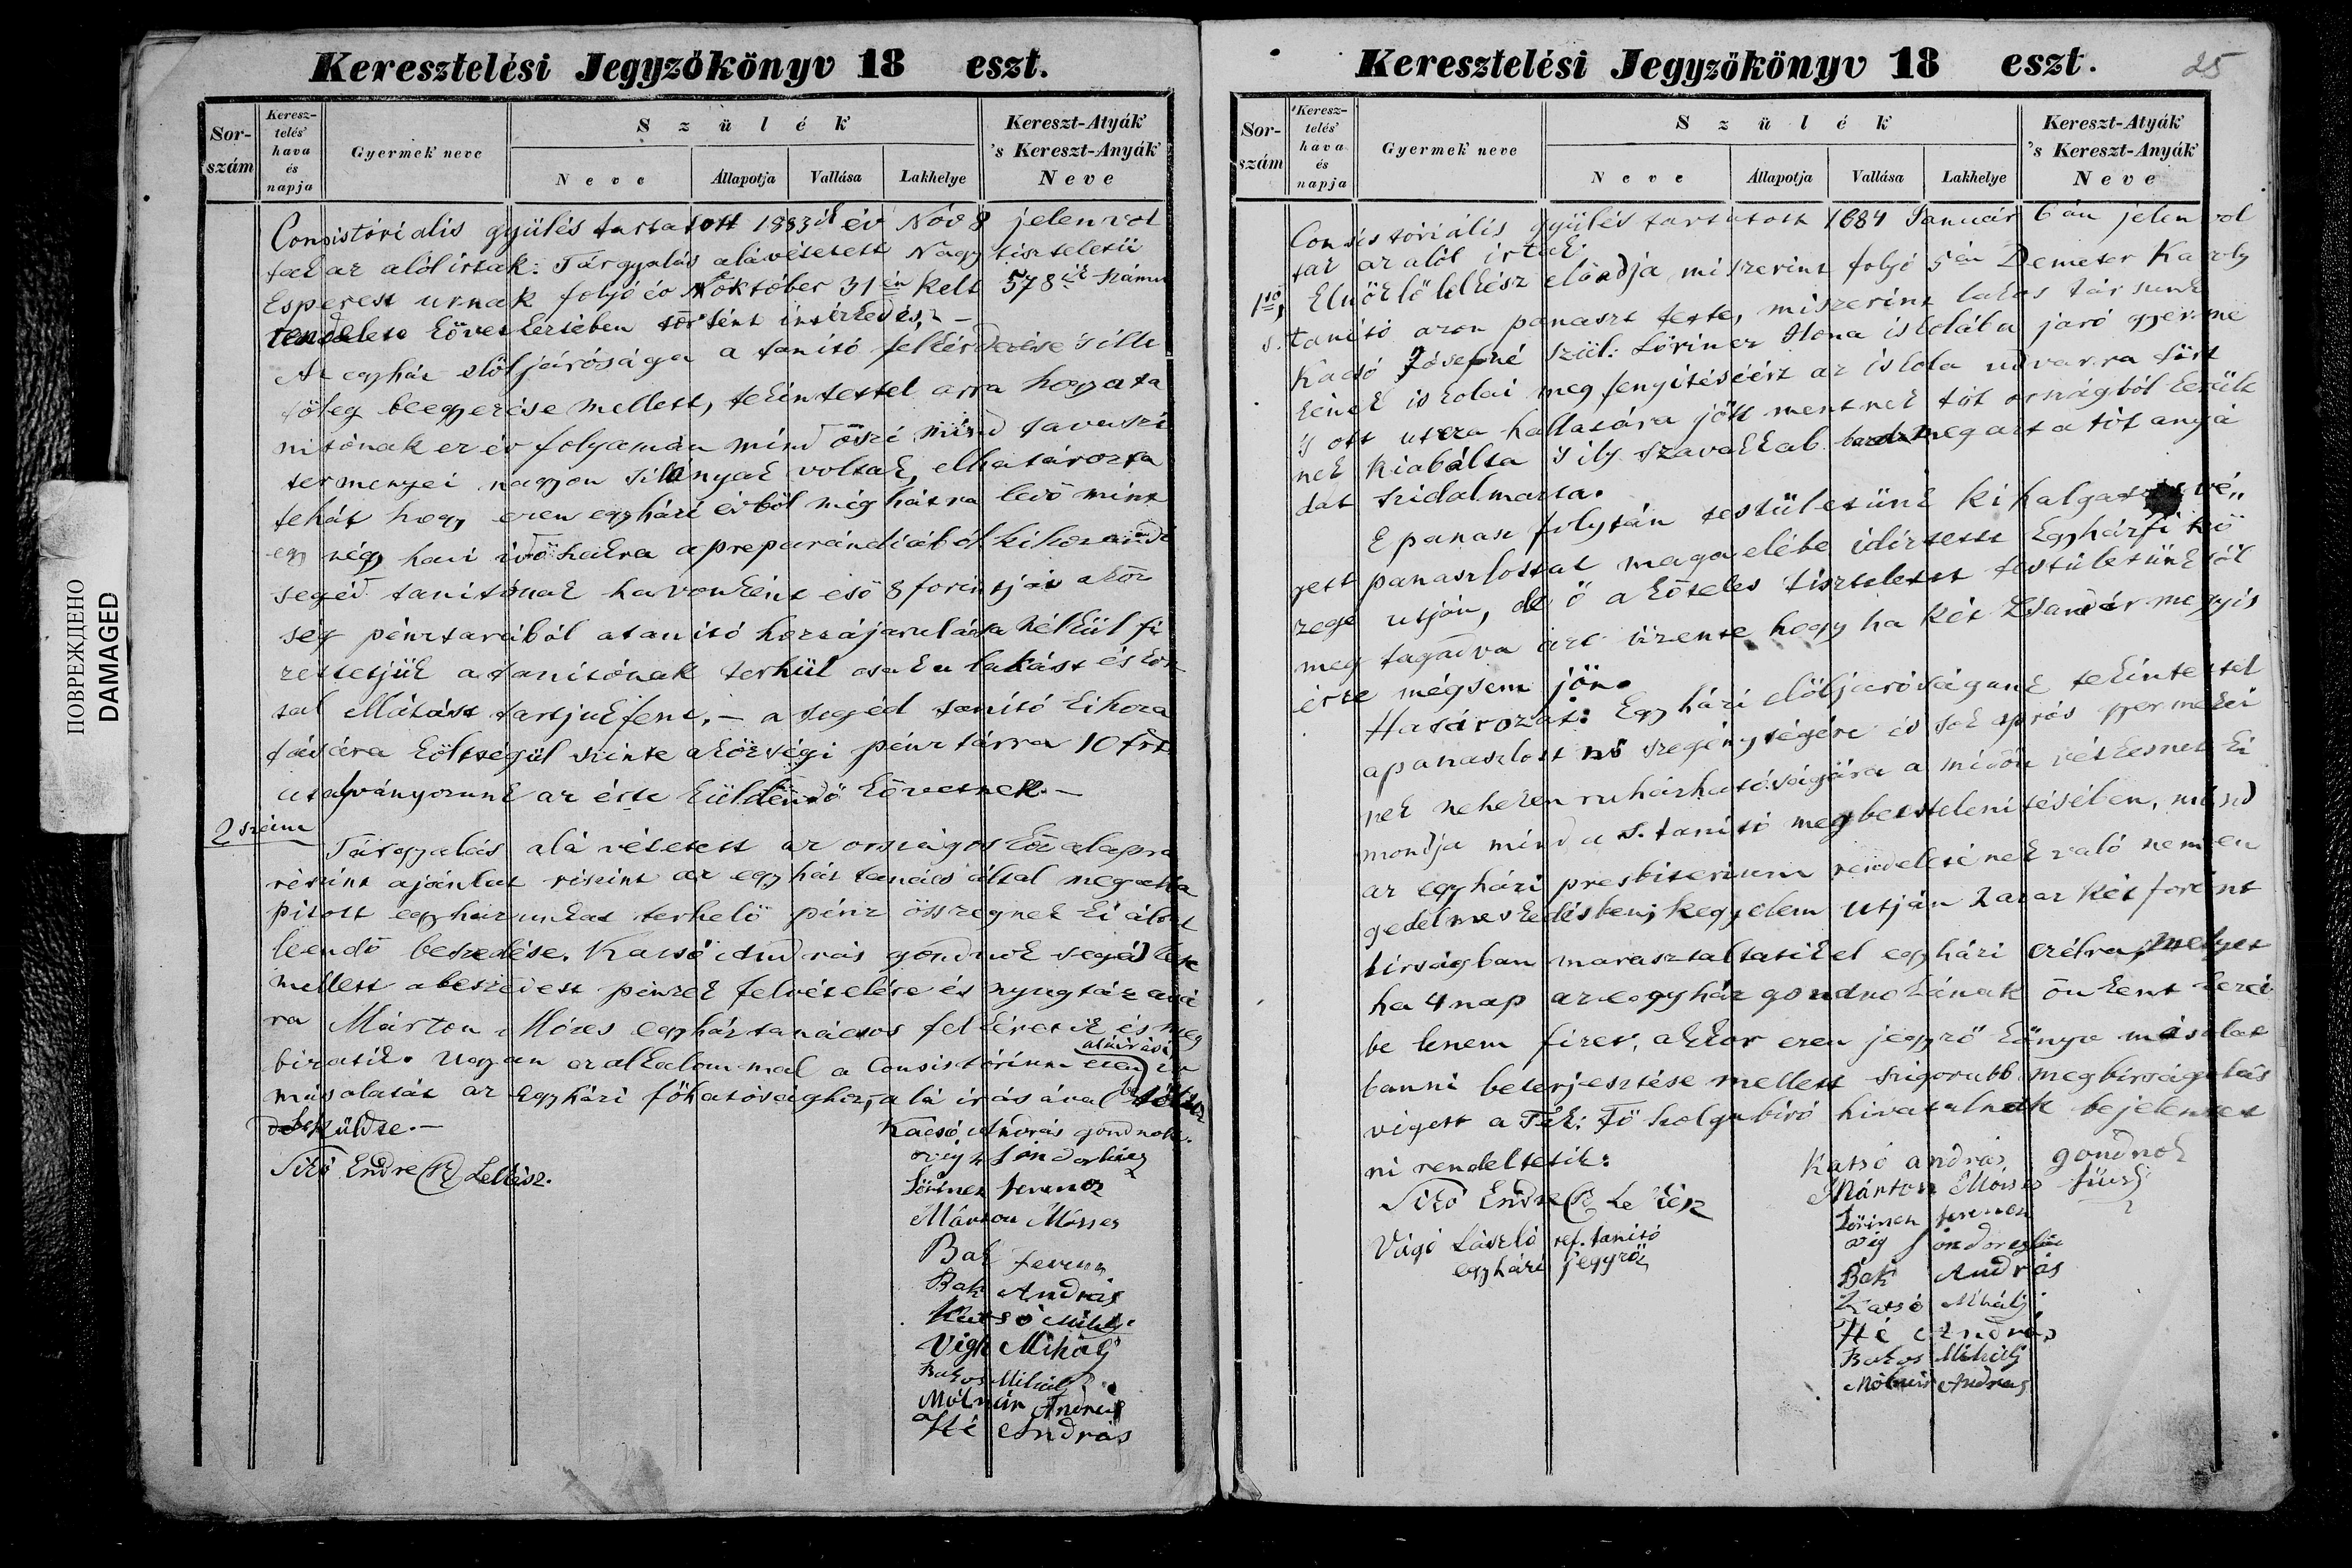 Keresztelési Jegyzőkönyv 18 eszt.
Sor-szám
Keresz-telés' hava és napja
Gyermek neve
Szülék
Neve
Állapotja
Vallása
Lakhelye
Kereszt-Atyák 's Kereszt-Anyák Neve
Consistoriális gyülés tartatott 1883ik év Nov 8 jelen vol
tak az alólirtak: Tárgyalás alá vétetett Nagy tiszteletü
Esperest urnak folyó év október 31én kelt 578ik számu
rendelete következtében történt intézkedés, —
Az egyház elöljárósága a tanitó felkérdezése s ille
tőleg beegyezése mellett, tekintettel arra hogy a ta
nitónak ez év folyamán mind őszi mind tavaszi
termenyei nagyon silányak voltak, elhatározta
tehát hogy ezen egyházi évből még hátra levő mint
egy négy havi időszakra a preparándiából kihozandó
segéd tanitónak havonként eső 8 forintját a köz
ség pénztarából a tanitó hozzájarulása nélkül fi
zettetjük a tanitónak terhül csak a lakást és kosz
tal ellátást tartjuk fenn. — a segéd tanitó kihoza
tására költségül szinte a községi pénztárra 10 frt
utalványozunk az érte küldendő követnek. —
2 szám
Tárgyalás alá vétetett az országos közalapra
részint ajánlat részint az egyház tanács által megálla
pitott egyházunkat terhelő pénz összegnek
leendő beszedése. Kacsó András gondnok segédlete
mellett a beszedett pénzek felvételére és nyugtázásá
ra Márton Mózes egyház tanácsos felkéretik és meg
bizatik. Ugyan ez alkalommal a Consistórium ezen
aláirási
másolatát az egyházi főhatósághoz, alá irásával
küldte. —
Kacsó András gondnok.
Sikó Endre Lelkész.
Lőrincz Ferencz
Márton Mózses
Bak Ferencz
Bak András
Katsó Mihály
Vigh Mihálj
Bakos Mihálj
Mólnár András
Hé András
ПОВРЕЖДЕНО
DAMAGED
Keresztelési Jegyzőkönyv 18 eszt.
25
Sor-szám
Keresz-telés' hava és napja
Gyermek neve
Szülék
Neve
Állapotja
Vallása
Lakhelye
Kereszt-Atyák 's Kereszt-Anyák Neve
Consistoriális gyülés tartatott 1884 Január 6án jelen vol
tak az alól irtak:
1ső, Elnöklő lelkész előadja miszerint folyó 5én Demeter Karoly
s. tanitó azon panaszt tette, miszerint lakos társunk
Kacsó Józsefné szül: Lőrincz Ilona iskolába járó gyerme
kének iskolai meg fenyitéséért az iskola udvarra
s ott utcza hallatára jött mentnek tót országból került
nek kiabálta s ily szavakkal meg azt a tót anyá
dat szidalmazta.
E panasz folytán testületünk kihalgatás vé„
gett panaszlottat maga elébe idéztette Egyházfi Hé
utján, de ő a köteles tiszteletet testületünktől
meg tagadva azt üzente hogy ha két zsandár megyis
érte mégsem jön.
Határozat: Egyházi elöljaróságunk tekintettel
a panaszlott nő szegénységére és sok aprós gyermekei
nek nehezen ruházhatóságára a midőn vétkesnek ki
mondja mind a s. tanitó megbecstelenitésében, mind
az egyházi presbiterium rendeletének való nem en
gedelmeskedésben; kegyelem utján 2 azaz két forint
birságban marasztaltatik el egyházi czélra, melyet
ha 4 nap az egyház gondnokának önként kezei
be lenem fizet, akkor ezen jegyző könyv másolat
banni beterjesztése mellett szigorubb megbirságolás
végett a Tek: Fő szolgabiró hivatalnak bejelentet
ni rendeltetik:
Katsó andrás gondnok
Sikó Endre Lelkész
Márton Mózses
Lőrincz ferencz
Vágó László ref. tanitó
egyházi jegyző
Bak András
Katsó Mihálj
Hé András
Bakos Mihálj
Mólnár András